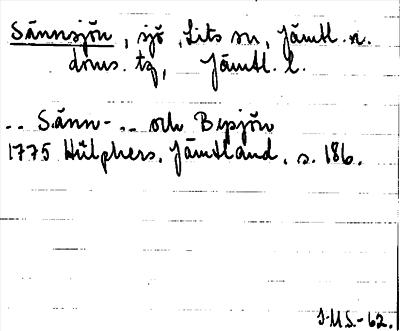 Sännsjön, sjö, Lits sn, Jämtl. n.
doms. tg, Jämtl. l.
.. Sänn- .. och Bysjön
1775 Hülphers, Jämtland, s. 186.
J.M.S.-62.